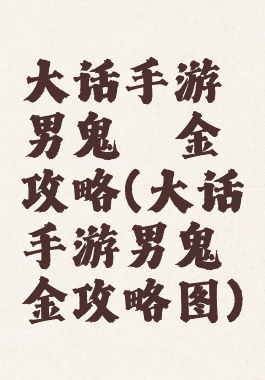 大话手游
男鬼 金
攻略(大话
手游男鬼
金攻略图)